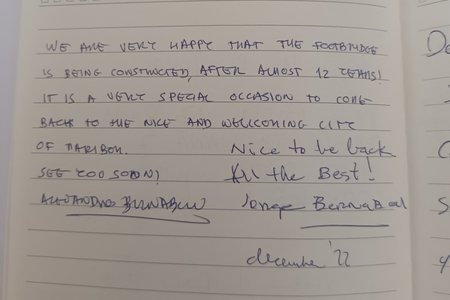 WE ARE VERY HAPPY THAT THE FOOTBRIDGE
IS BEING CONSTRUCTED, AFTER ALMOST 12 YEARS!
IT IS A VERY SPECIAL OCCASION TO COME
BACK TO THE NICE AND WELCOMING CITY
OF MARIBOR.
SEE YOU SOON!
ALEJANDRO BERNABEU
Nice to be back
All the Best!
Jorge BERNABEU
december '22